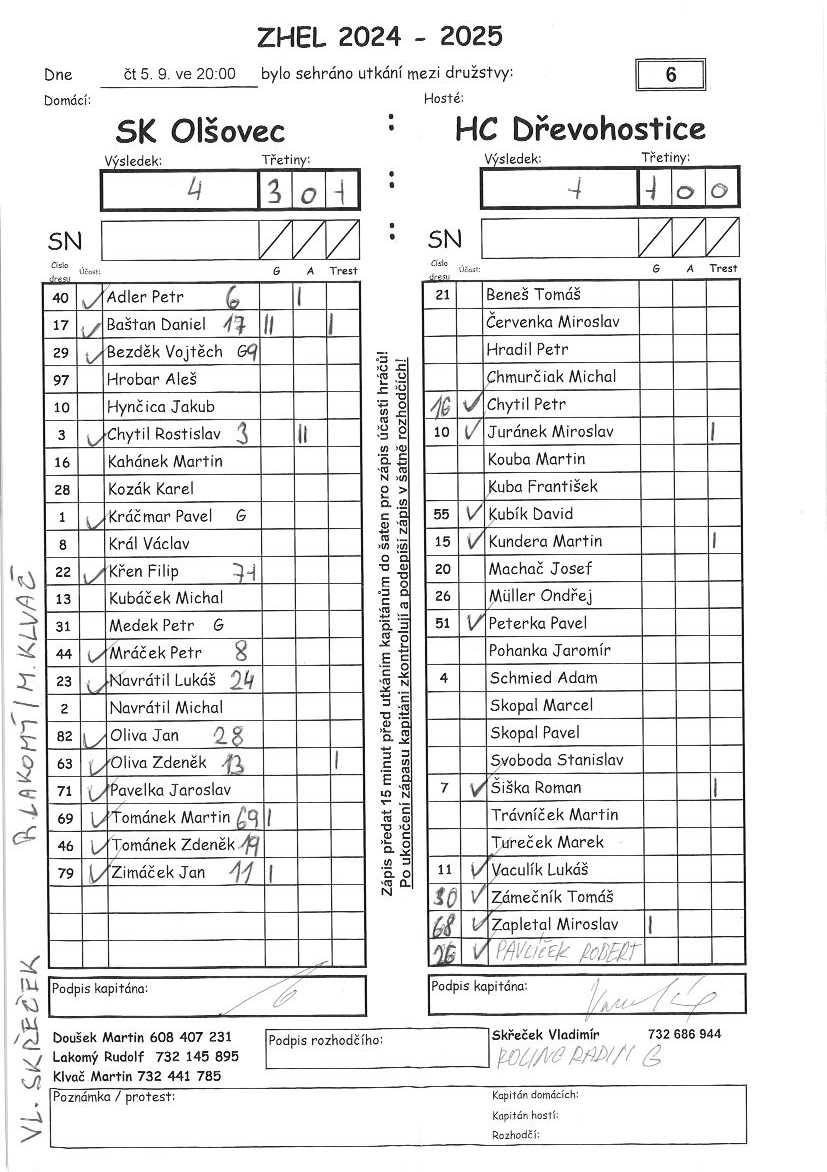 ZHEL 2024 - 2025
Dne čt 5. 9. ve 20:00 bylo sehráno utkání mezi družstvy: 6
Domácí: Hosté:
SK Olšovec : HC Dřevohostice
Výsledek: Třetiny: Výsledek: Třetiny:
4 3 0 1 : 1 1 0 0
SN : SN
Číslo dresu Účast: G A Trest Číslo dresu Účast: G A Trest
40 ✓ Adler Petr 6 | 21 Beneš Tomáš
17 ✓ Baštan Daniel 17 || | Červenka Miroslav
29 ✓ Bezděk Vojtěch G9 Hradil Petr
97 Hrobar Aleš Chmurčiak Michal
10 Hynčica Jakub 16 ✓ Chytil Petr
3 ✓ Chytil Rostislav 3 || 10 ✓ Juránek Miroslav |
16 Kahánek Martin Kouba Martin
28 Kozák Karel Kuba František
1 ✓ Kráčmar Pavel G 55 ✓ Kubík David
8 Král Václav 15 ✓ Kundera Martin |
22 ✓ Křen Filip 71 20 Machač Josef
13 Kubáček Michal 26 Müller Ondřej
31 Medek Petr G 51 ✓ Peterka Pavel
44 ✓ Mráček Petr 8 Pohanka Jaromír
23 ✓ Navrátil Lukáš 24 4 Schmied Adam
2 Navrátil Michal Skopal Marcel
82 ✓ Oliva Jan 28 Skopal Pavel
63 ✓ Oliva Zdeněk 13 | Svoboda Stanislav
71 ✓ Pavelka Jaroslav 7 ✓ Šiška Roman |
69 ✓ Tománek Martin 69 | Trávníček Martin
46 ✓ Tománek Zdeněk 19 Tureček Marek
79 ✓ Zimáček Jan 11 | 11 ✓ Vaculík Lukáš
30 ✓ Zámečník Tomáš
68 ✓ Zapletal Miroslav |
26 ✓ PAVLÍČEK ROBERT
Zápis předat 15 minut před utkáním kapitánům do šaten pro zápis účasti hráčů!
Po ukončení zápasu kapitáni zkontrolují a podepíší zápis v šatně rozhodčích!
R. LAKOMÝ / M. KLVAČ
VL. SKŘEČEK
Podpis kapitána: Podpis kapitána:
Doušek Martin 608 407 231 Podpis rozhodčího: Skřeček Vladimír 732 686 944
Lakomý Rudolf 732 145 895 RADIM G
Klvač Martin 732 441 785
Poznámka / protest: Kapitán domácích:
Kapitán hostí:
Rozhodčí: